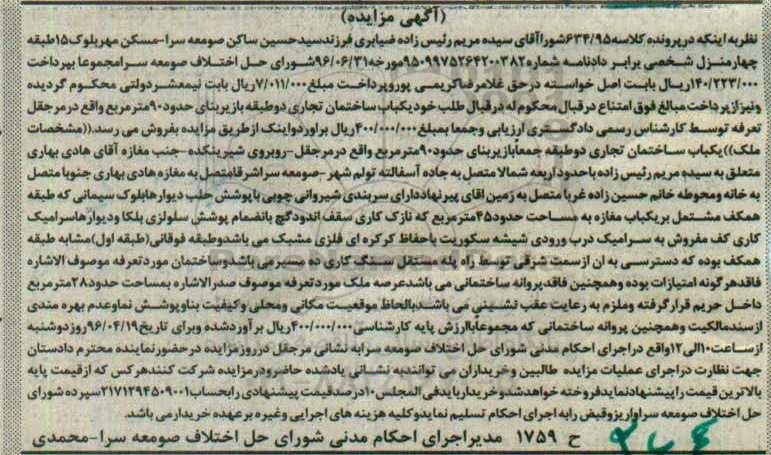 (آگهی مزایده)
نظربه اینکه درپرونده کلاسه۶۳۴/۹۵شوراآقای سیده مریم رئیس زاده ضیابری فرزندسیدحسین ساکن صومعه سرا-مسکن مهربلوک۱۵طبقه
چهارمنزل شخصی برابر دادنامه شماره۹۵۰۹۹۷۵۲۶۴۲۰۰۳۸۲مورخه۹۶/۰۶/۳۱شورای حل اختلاف صومعه سرامجموعا بپرداخت
۱۴۰/۲۲۳/۰۰۰ریال بابت اصل خواسته درحق غلامرضاکریمی پوروپرداخت مبلغ۷/۰۱۱/۰۰۰ریال بابت نیمعشردولتی محکوم گردیده
ونیزازپرداخت مبالغ فوق امتناع درقبال محکوم له درقبال طلب خودیکباب ساختمان تجاری دوطبقه بازیربنای حدود۹۰مترمربع واقع درمرجقل
تعرفه توسط کارشناس رسمی دادگستری ارزیابی وجمعا بمبلغ۴۰۰/۰۰۰/۰۰۰ریال براوردواینک ازطریق مزایده بفروش می رسد.((مشخصات
ملک))یکباب ساختمان تجاری دوطبقه جمعابازیربنای حدود۹۰مترمربع واقع درمرجقل-روبروی شیرینکده-جنب مغازه آقای هادی بهاری
متعلق به سیده مریم رئیس زاده باحدوداربعه شمالا متصل به جاده آسفالته تولم شهر-صومعه سراشرقامتصل به مغازه هادی بهاری جنوبا متصل
به خانه ومحوطه خانم حسین زاده غربا متصل به زمین اقای پیرنهاددارای سربندی شیروانی چوبی باپوشش حلب دیوارهابلوک سیمانی که طبقه
همکف مشتمل بریکباب مغازه به مساحت حدود۴۵مترمربع که نازک کاری سقف اندودگچ بانضمام پوشش سلولزی بلکا ودیوارهاسرامیک
کاری کف مفروش به سرامیک درب ورودی شیشه سکوریت باحفاظ کرکره ای فلزی مشبک می باشدوطبقه فوقانی(طبقه اول)مشابه طبقه
همکف بوده که دسترسی به ان ازسمت شرقی توسط راه پله مستقل سنگ کاری ده میسرمی باشدوساختمان موردتعرفه موصوف الاشاره
فاقدهرگونه امتیازات بوده وهمچنین فاقدپروانه ساختمانی می باشدعرصه ملک موردتعرفه موصوف صدرالاشاره بمساحت حدود۲۸مترمربع
داخل حریم قرارگرفته وملزم به رعایت عقب نشینی می باشدبالحاظ موقعیت مکانی ومحلی وکیفیت بناوپوشش نماوعدم بهره مندی
ازسندمالکیت وهمچنین پروانه ساختمانی که مجموعاباارزش پایه کارشناسی۴۰۰/۰۰۰/۰۰۰ریال برآوردشده وبرای تاریخ۹۶/۰۴/۱۹روزدوشنبه
ازساعت۱۰الی۱۲واقع دراجرای احکام مدنی شورای حل اختلاف صومعه سرابه نشانی مرجقل درروزمزایده درحضورنماینده محترم دادستان
جهت نظارت دراجرای عملیات مزایده طالبین وخریداران می توانندبه نشانی یادشده حاضرودرمزایده شرکت کنندهرکس که ازقیمت پایه
بالاترین قیمت راپیشنهادنمایدفروخته خواهدشدوخریداربایدفی المجلس۱۰درصدقیمت پیشنهادی رابحساب۲۱۷۱۲۹۴۵۰۹۰۰۱سپرده شورای
حل اختلاف صومعه سراواریزوقبض رابه اجرای احکام تسلیم نمایدوکلیه هزینه های اجرایی وغیره برعهده خریدارمی باشد.
ح ۱۷۵۹ مدیراجرای احکام مدنی شورای حل اختلاف صومعه سرا-محمدی